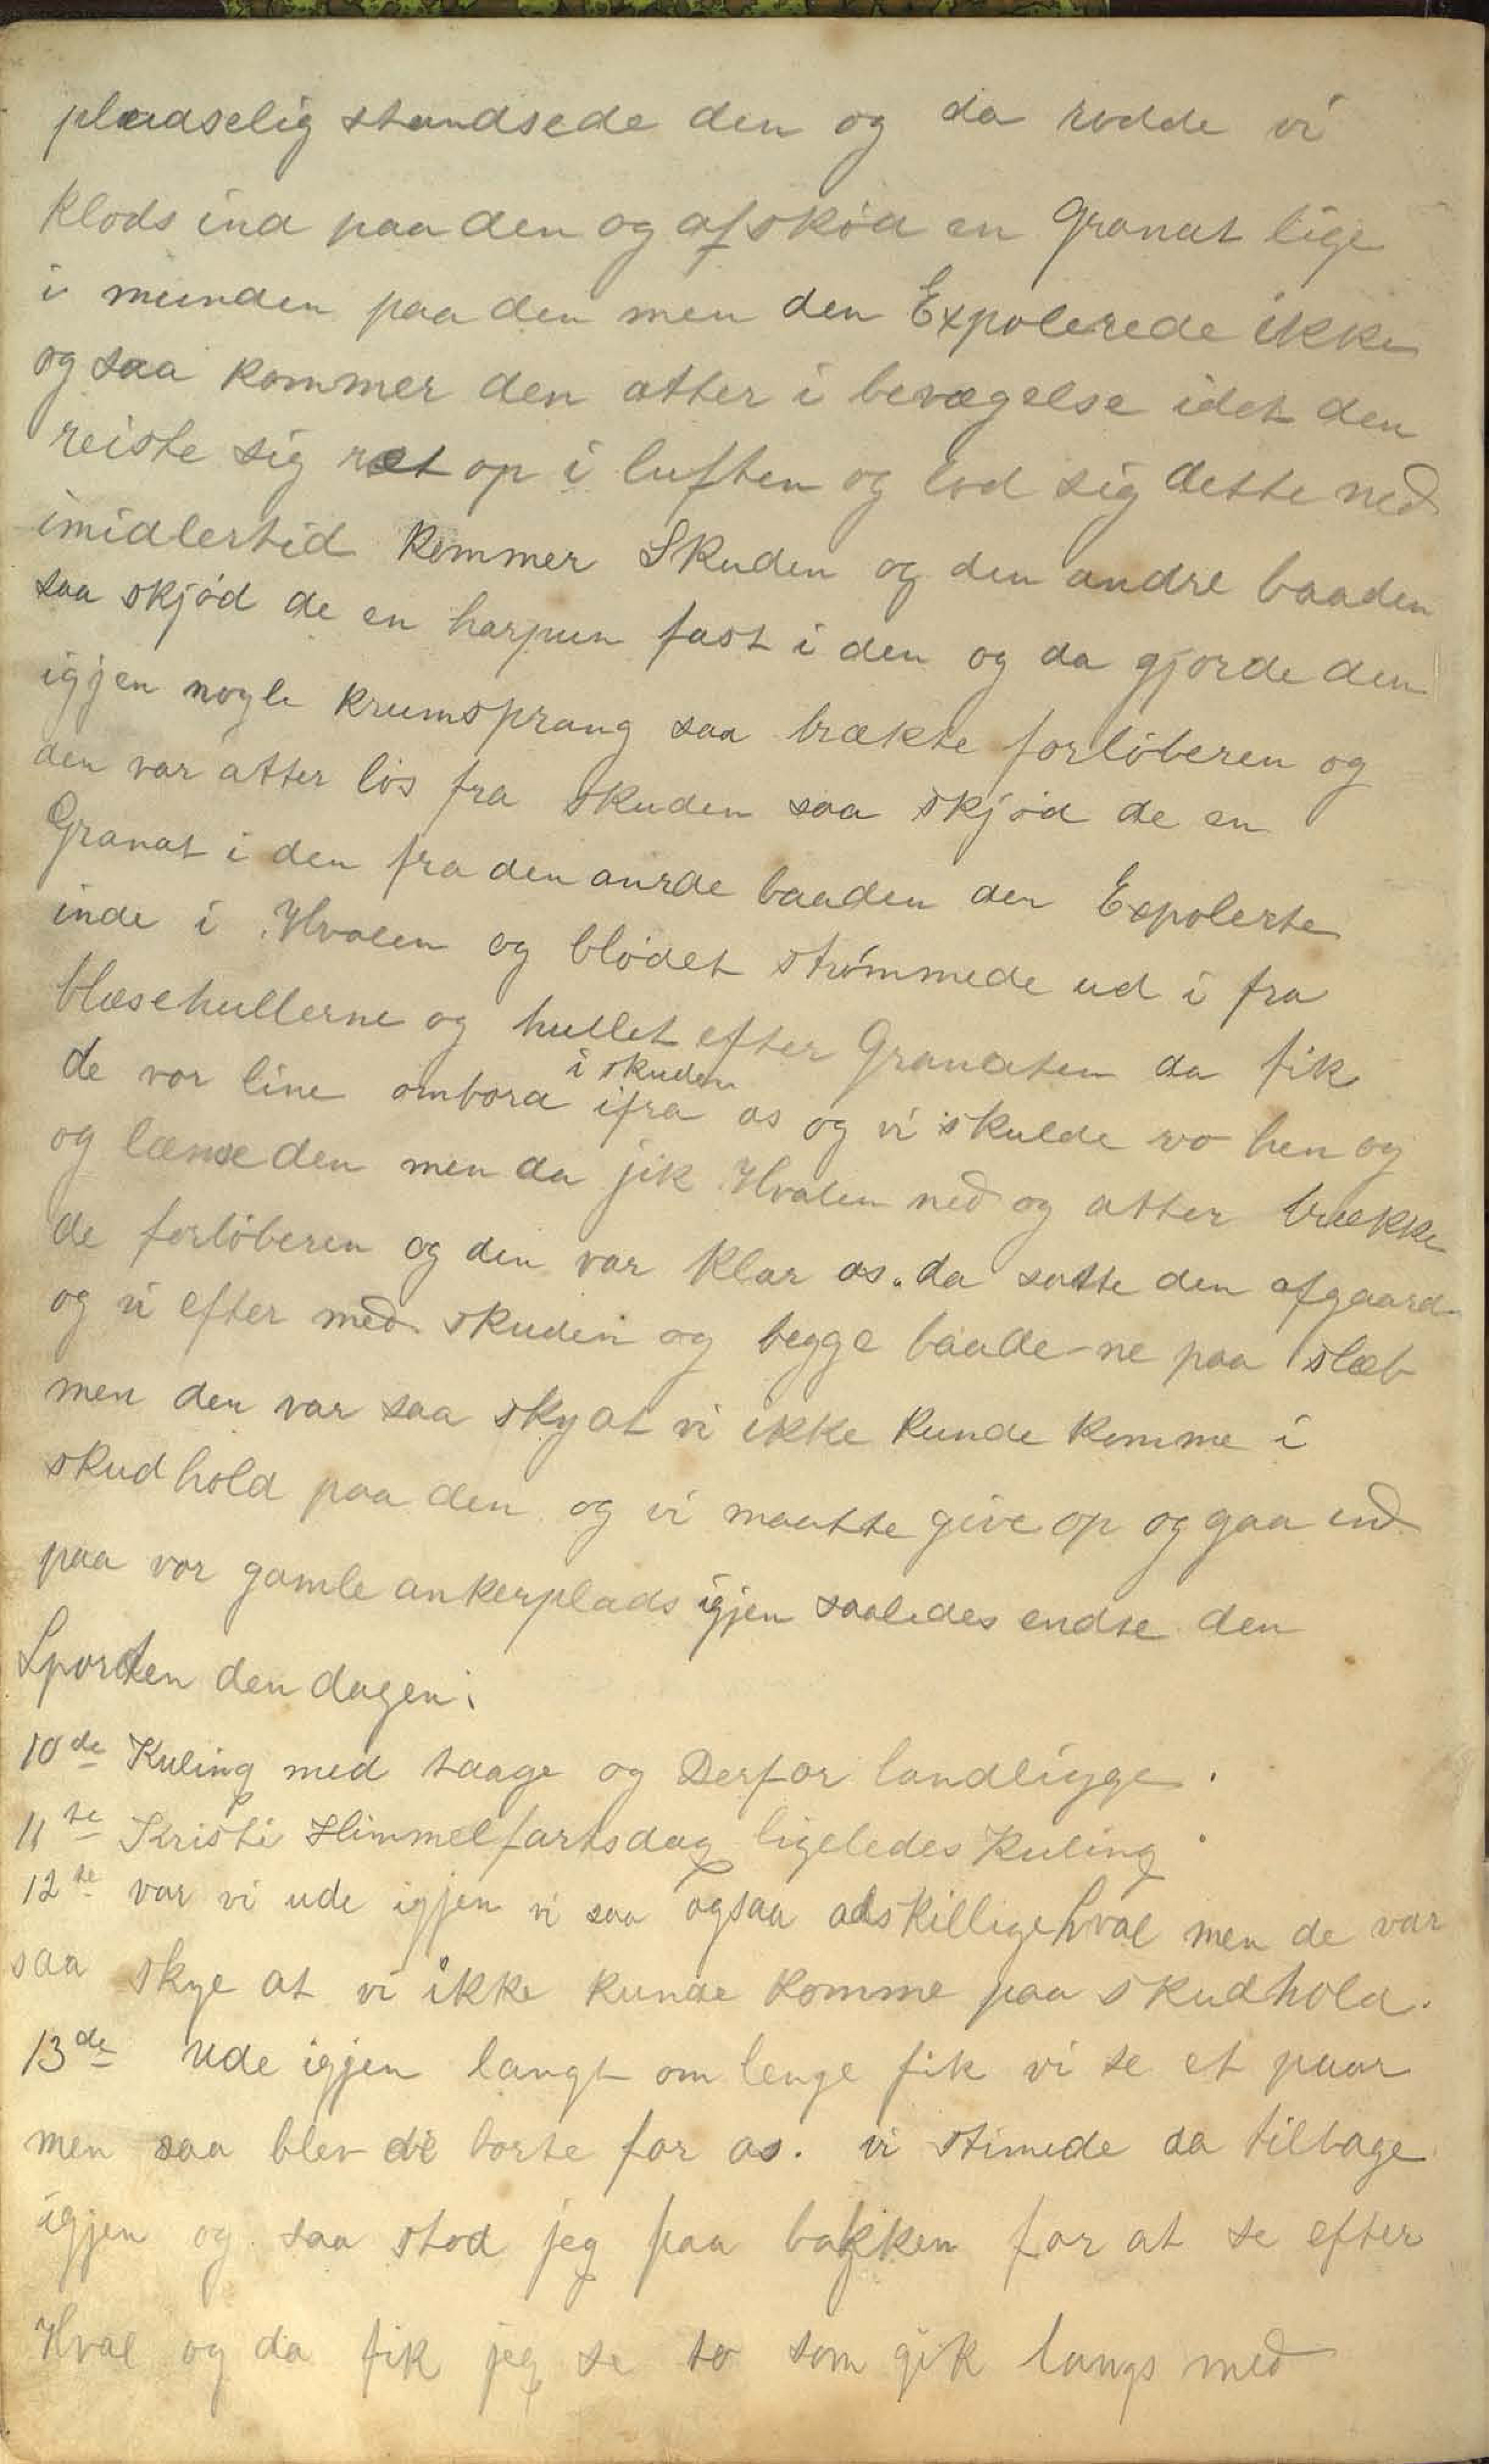 pludselig standsede den og da rodde vi
klods ind paa den og afskød en Granat lige
i munden paa den men den Expolerede ikke
og saa kommer den atter i bevægelse idet den
reiste sig ret op i luften og lod sig dette ned
imidlertid kommer Skuden og den andre baaden
saa skjød de en harpun fast i den og da gjorde den
igjen nogle krumsprang saa brækte forløberen og
den var atter løs fra Skuden saa skjød de en
Granat i den fra den anrde baaden den Expolerte
inde i Hvalen og blødet strømmede ud i fra
blæsehullerne og hullet efter Granaten da fik
de vor line ombord i skuden ifra os og vi skulde ro hen og
og lænse den men da jik Hvalen ned og atter brække
de forløberen og den var klar os. da satte den afgaard
og vi efter med skuden og begge baade-ne paa slæb
men den var saa sky at vi ikke kunde komme i
skudhold paa den og vi maatte give op og gaa ind
paa vor gamle ankerplads igjen saaledes endte den
Sporten den dagen.
10de Kuling med taage og Derfor landligge.
11te Kristi Himmelfartsdag ligeledes Kuling.
12te var vi ude igjen vi saa ogsaa adskillige hval men de var
saa skye at vi ikke kunde komme paa skudhold.
13de Ude igjen langt om lenge fik vi se et paar
men saa blev de borte for os. vi stimede da tilbage
igjen og saa stod jeg paa bakken for at se efter
Hval og da fik jeg se to som gik langs med